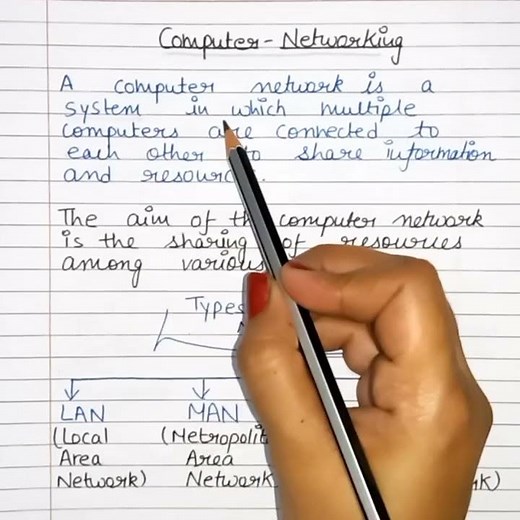 Computer - Networking
A computer network is a
system in which multiple
computers are connected to
each other to share information
and
The aim of the computer network
is the sharing of resources
among various
Types
LAN MAN
(Local
Area Area
Network) Network